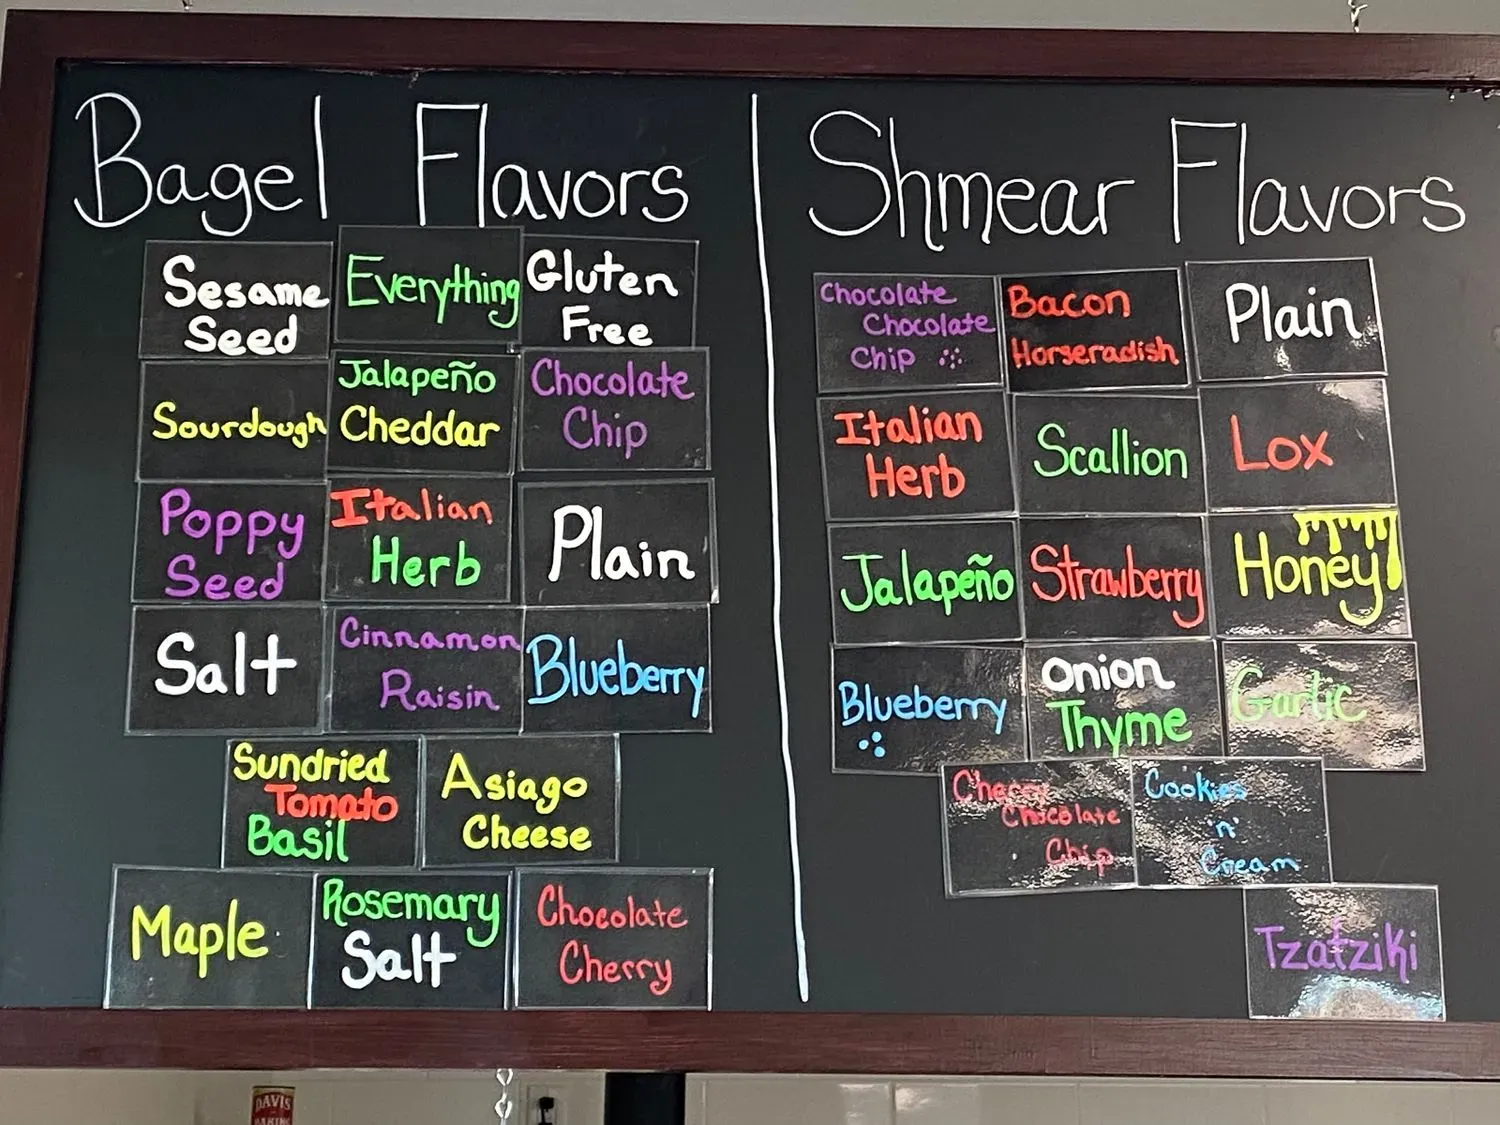 Bagel Flavors
Sesame
Seed
Everything
Gluten
Free
Sourdough
Jalapeño
Cheddar
Chocolate
Chip
Poppy
Seed
Italian
Herb
Plain
Salt
Cinnamon
Raisin
Blueberry
Sundried
Tomato
Basil
Asiago
Cheese
Maple
Rosemary
Salt
Chocolate
Cherry
Shmear Flavors
Chocolate
Chocolate
Chip
Bacon
Horseradish
Plain
Italian
Herb
Scallion
Lox
Jalapeño
Strawberry
Honey
Blueberry
Onion
Thyme
Garlic
Cherry
Chocolate
Chip
Cookies
'n'
Cream
Tzatziki
DAVIS
BAKING